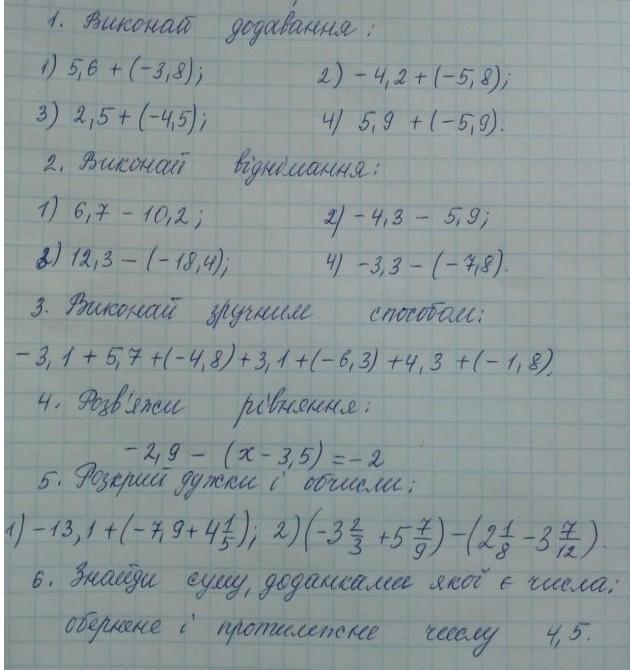 1. Виконай додавання:
1) 5,6 + (-3,8); 2) -4,2 + (-5,8);
3) 2,5 + (-4,5); 4) 5,9 + (-5,9).
2. Виконай віднімання:
1) 6,7 - 10,2; 2) -4,3 - 5,9;
3) 12,3 - (-18,4); 4) -3,3 - (-7,8).
3. Виконай зручним способом:
-3,1 + 5,7 + (-4,8) + 3,1 + (-6,3) + 4,3 + (-1,8).
4. Розв'яжи рівняння:
-2,9 - (x - 3,5) = -2
5. Розкрий дужки і обчисли:
1) -13,1 + (-7,9 + 4 1/5); 2) (-3 2/3 + 5 7/9) - (2 1/8 - 3 7/12).
6. Знайди суму, доданками якої є числа:
обернене і протилежне числу 4,5.